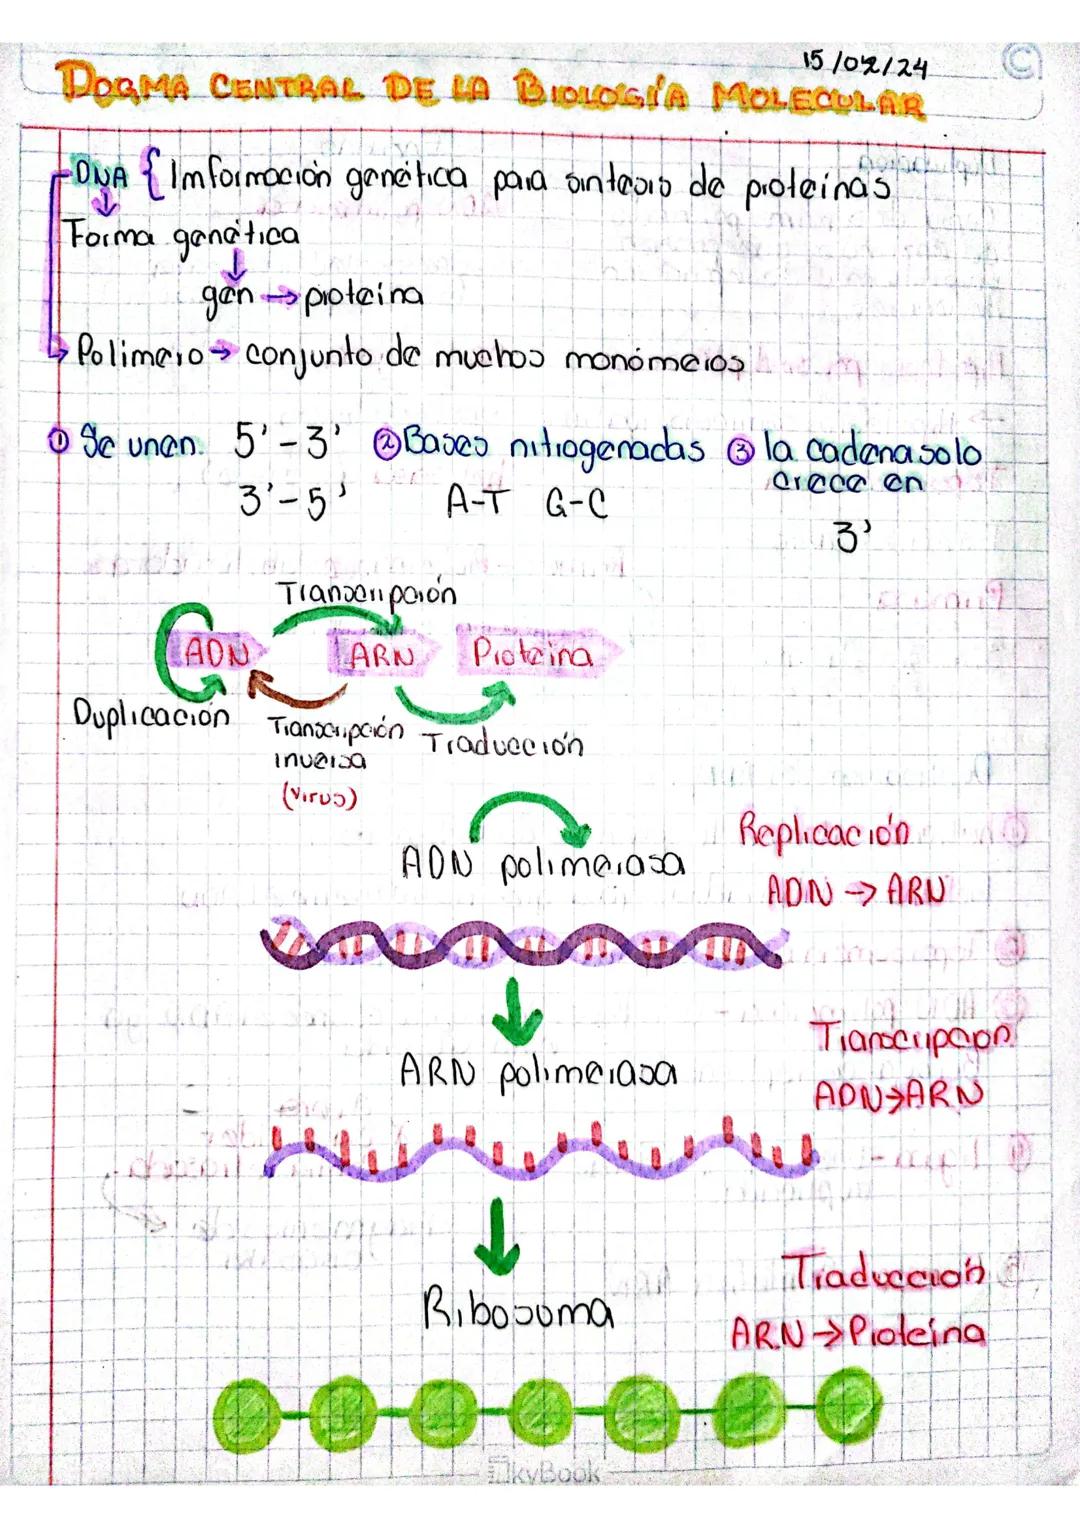 15/02/24
DOGMA CENTRAL DE LA BIOLOGÍA MOLECULAR
DNA { Imformación genética para sintesis de proteinas
Forma genética
gen → proteina
Polimero → conjunto de muchos monómeros
① Se unen. 5'-3' ② Bases nitrogenadas ③ la cadena solo
crece en
3'-5' A-T G-C
3'
Transcripción
ADN ARN Proteina
Duplicación
Transcripción Traducción
inversa
(virus)
Replicación
ADN polimerasa
ADN → ARN
Transcripcion
ARN polimerasa
ADN→ARN
Traducción
Ribosoma
ARN → Proteína
SkyBook